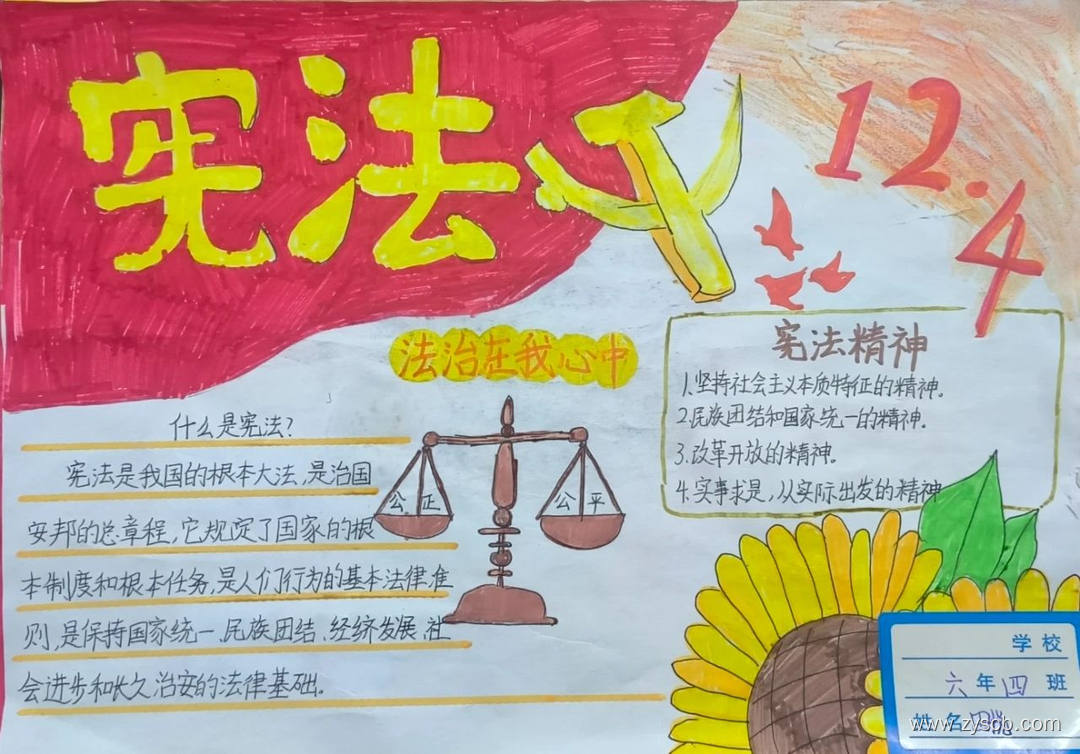 宪法
12.4
法治在我心中
什么是宪法?
宪法是我国的根本大法,是治国
安邦的总章程,它规定了国家的根
本制度和根本任务,是人们行为的基本法律准
则,是保持国家统一、民族团结、经济发展、社
会进步和长久治安的法律基础.
公正
公平
宪法精神
1.坚持社会主义本质特征的精神。
2.民族团结和国家统一的精神.
3.改革开放的精神。
4.实事求是,从实际出发的精神
学校
六年四班
姓名
www.zyspb.com